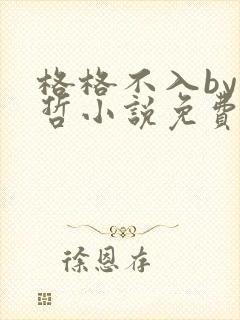 格格不入by
哲小說免費
徐恩存